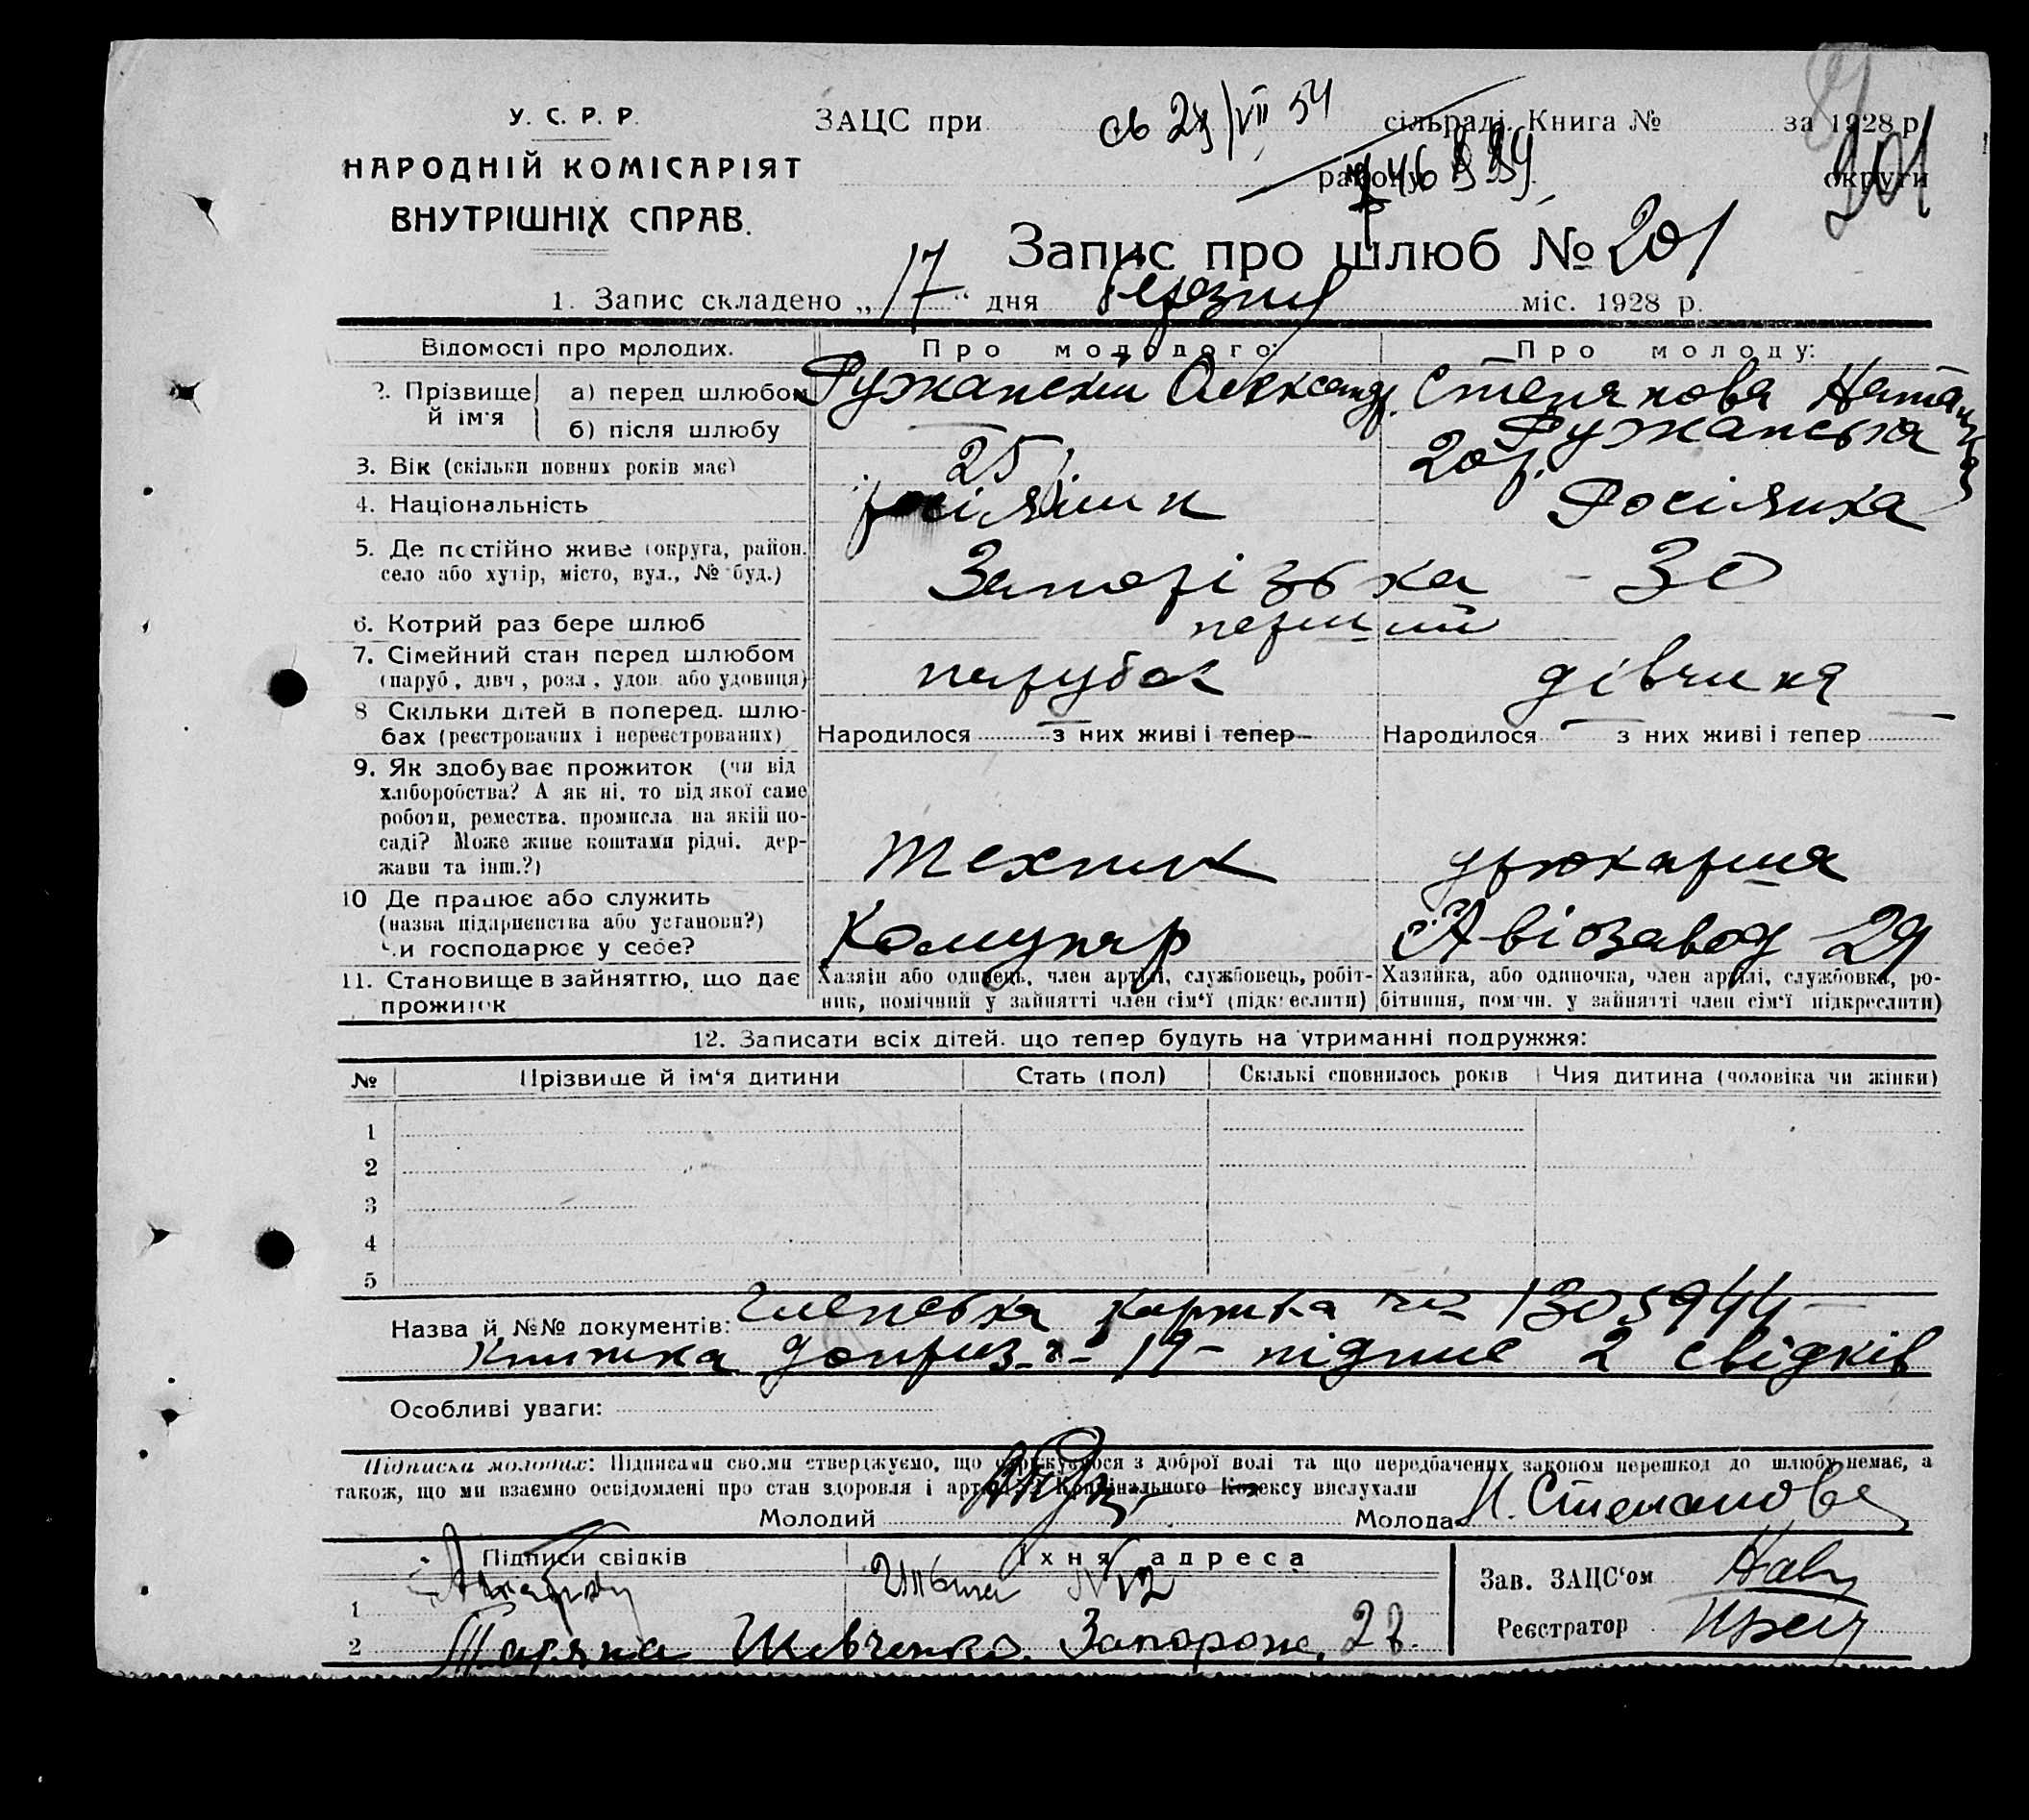 У. С. Р. Р.
НАРОДНІЙ КОМІСАРІЯТ
ВНУТРІШНІХ СПРАВ.
ЗАЦС при сільраді. Книга № за 1928 р.
району округи
201
Запис про шлюб № 201
1. Запис складено „ 17 “ дня березня міс. 1928 р.
Відомості про молодих. Про молодого: Про молоду:
2. Прізвище й ім'я а) перед шлюбом Ружанский Олександр. Степанова Наталія
б) після шлюбу — Ружанська
3. Вік (скільки повних років має) 25 р. 20 р.
4. Національність росіянин Росіянка
5. Де постійно живе (округа, район.
село або хутір, місто, вул., № буд.) Запорізька - 30
6. Котрий раз бере шлюб перший
7. Сімейний стан перед шлюбом
(паруб., дівч., розл., удов. або удовиця) парубок дівчина
8 Скільки дітей в поперед. шлю-
бах (реєстрованих і нереєстрованих) Народилося — з них живі і тепер — Народилося — з них живі і тепер —
9. Як здобуває прожиток (чи від
хліборобства? А як ні, то від якої саме
роботи, ремества, промисла на якій по-
саді? Може живе коштами рідні, дер-
жави та інш.?) технік
10 Де працює або служить
(назва підприємства або установи?)
Чи господарює у себе? Комунар Авіозавод 29
11. Становище в зайняттю, що дає
прожиток
Хазяїн або одинець, член артілі, службовець, робіт-
ник, помічний у зайнятті член сім'ї (підкреслити)
Хазяйка, або одиночка, член артілі, службовка, ро-
бітниця, помічн. у зайнятті член сім'ї підкреслити)
12. Записати всіх дітей, що тепер будуть на утриманні подружжя:
№ Прізвище й ім'я дитини Стать (пол) Скількі сповнилось років Чия дитина (чоловіка чи жінки)
1
2
3
4
5
Назва й №№ документів: Членська картка № 1305944 —
книжка 19 - підпис 2 свідків
Особливі уваги:
Підписка молодих: Підписами своїми стверджуємо, що одружуємося з доброї волі та що передбачених законом перешкод до шлюбу немає, а
також, що ми взаємно освідомлені про стан здоровля і арт. Кримінального Кодексу вислухали
Молодий Молода Н. Степанова
Підписи свідків Їхня адреса Зав. ЗАЦС'ом
1 № 12
2 Шевченко. Запорож. 28. Реєстратор